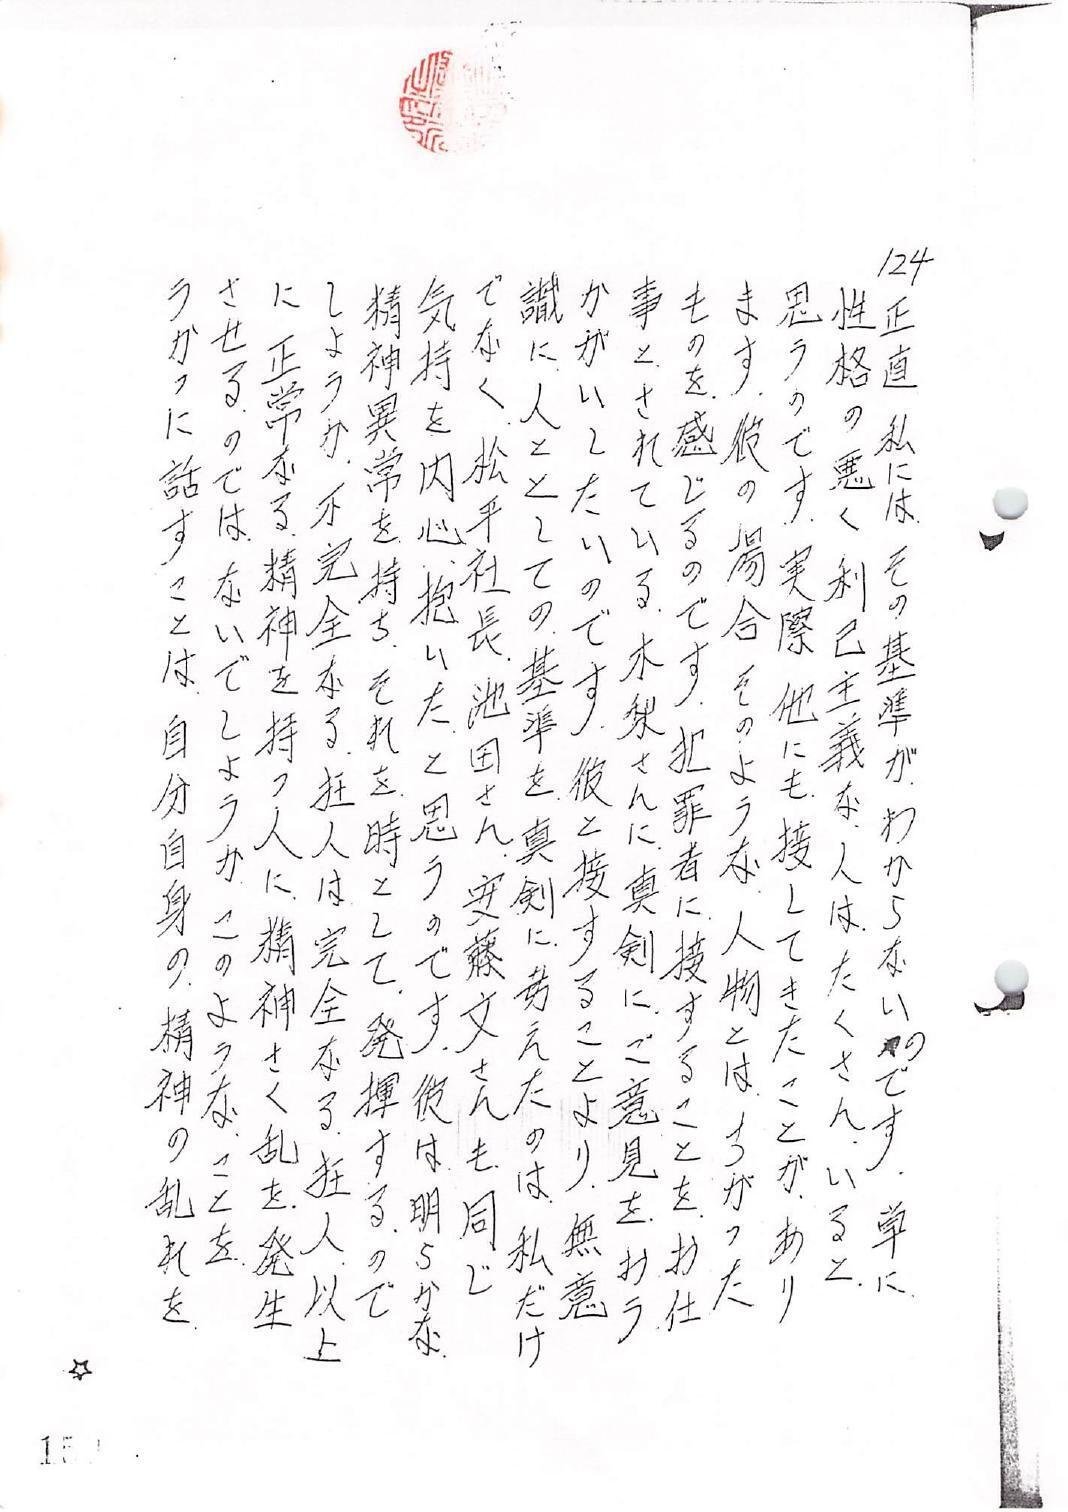 124
正直 私には その基準が わからないのです. 単に
性格の悪く 利己主義な 人は たくさん いると
思うのです. 実際 他にも 接してきたことが あり
ます. 彼の場合 そのような 人物とは ちがった
ものを 感じるのです. 犯罪者に 接することを お仕
事とされている 木梨さんに 真剣に ご意見を おう
かがいしたいのです. 彼と接することより 無意
識に 人ととしての 基準を 真剣に 考えたのは 私だけ
でなく 松平社長 池田さん 安藤文さんも 同じ
気持を 内心 抱いたと 思うのです. 彼は 明らかな
精神異常を 持ち それを 時として 発揮するので
しようか. 不完全なる 狂人は 完全なる 狂人 以上
に 正常なる 精神を 持つ人に 精神さく乱を 発生
させるのでは ないでしようか このような ことを
うかつに 話すことは 自分自身の 精神の乱れを
☆
15